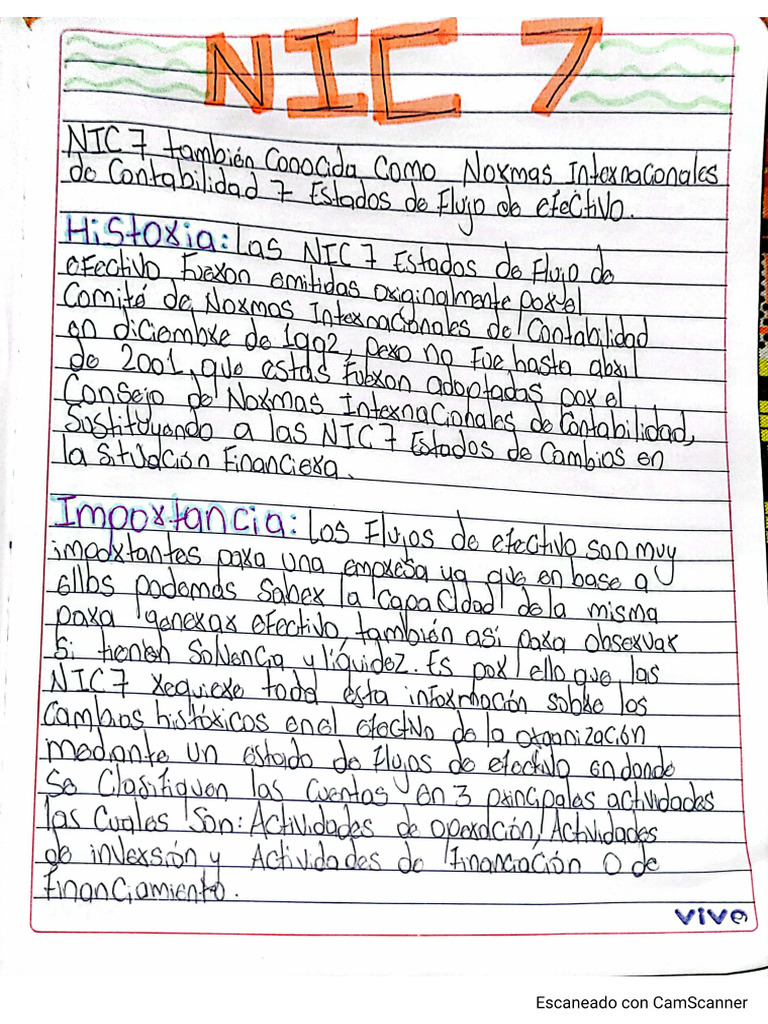 NIC 7
NIC 7 también Conocida Como Normas Internacionales
de Contabilidad 7 Estados de Flujo de efectivo.
Historia: Las NIC 7 Estados de Flujo de
efectivo Fueron emitidas originalmente por el
Comité de Normas Internacionales de Contabilidad
en diciembre de 1992, pero no fue hasta abril
de 2001, que estas fueron adoptadas por el
Consejo de Normas Internacionales de Contabilidad,
Sustituyendo a las NIC 7 Estados de Cambios en
la Situación Financiera.
Importancia: Los Flujos de efectivo son muy
importantes para una empresa ya que en base a
ellos podemos saber la capacidad de la misma
para generar efectivo, también asi para observar
Si tienen Solvencia y líquidez. Es por ello que las
NIC 7 requiere toda esta información sobre los
Cambios históricos en el efectivo de la organización
mediante un estado de flujos de efectivo en donde
Se Clasifiquen las Cuentas en 3 principales actividades
las Cuales Son: Actividades de operación, Actividades
de inversión y Actividades de Financiación O de
financiamiento.
vivo
Escaneado con CamScanner